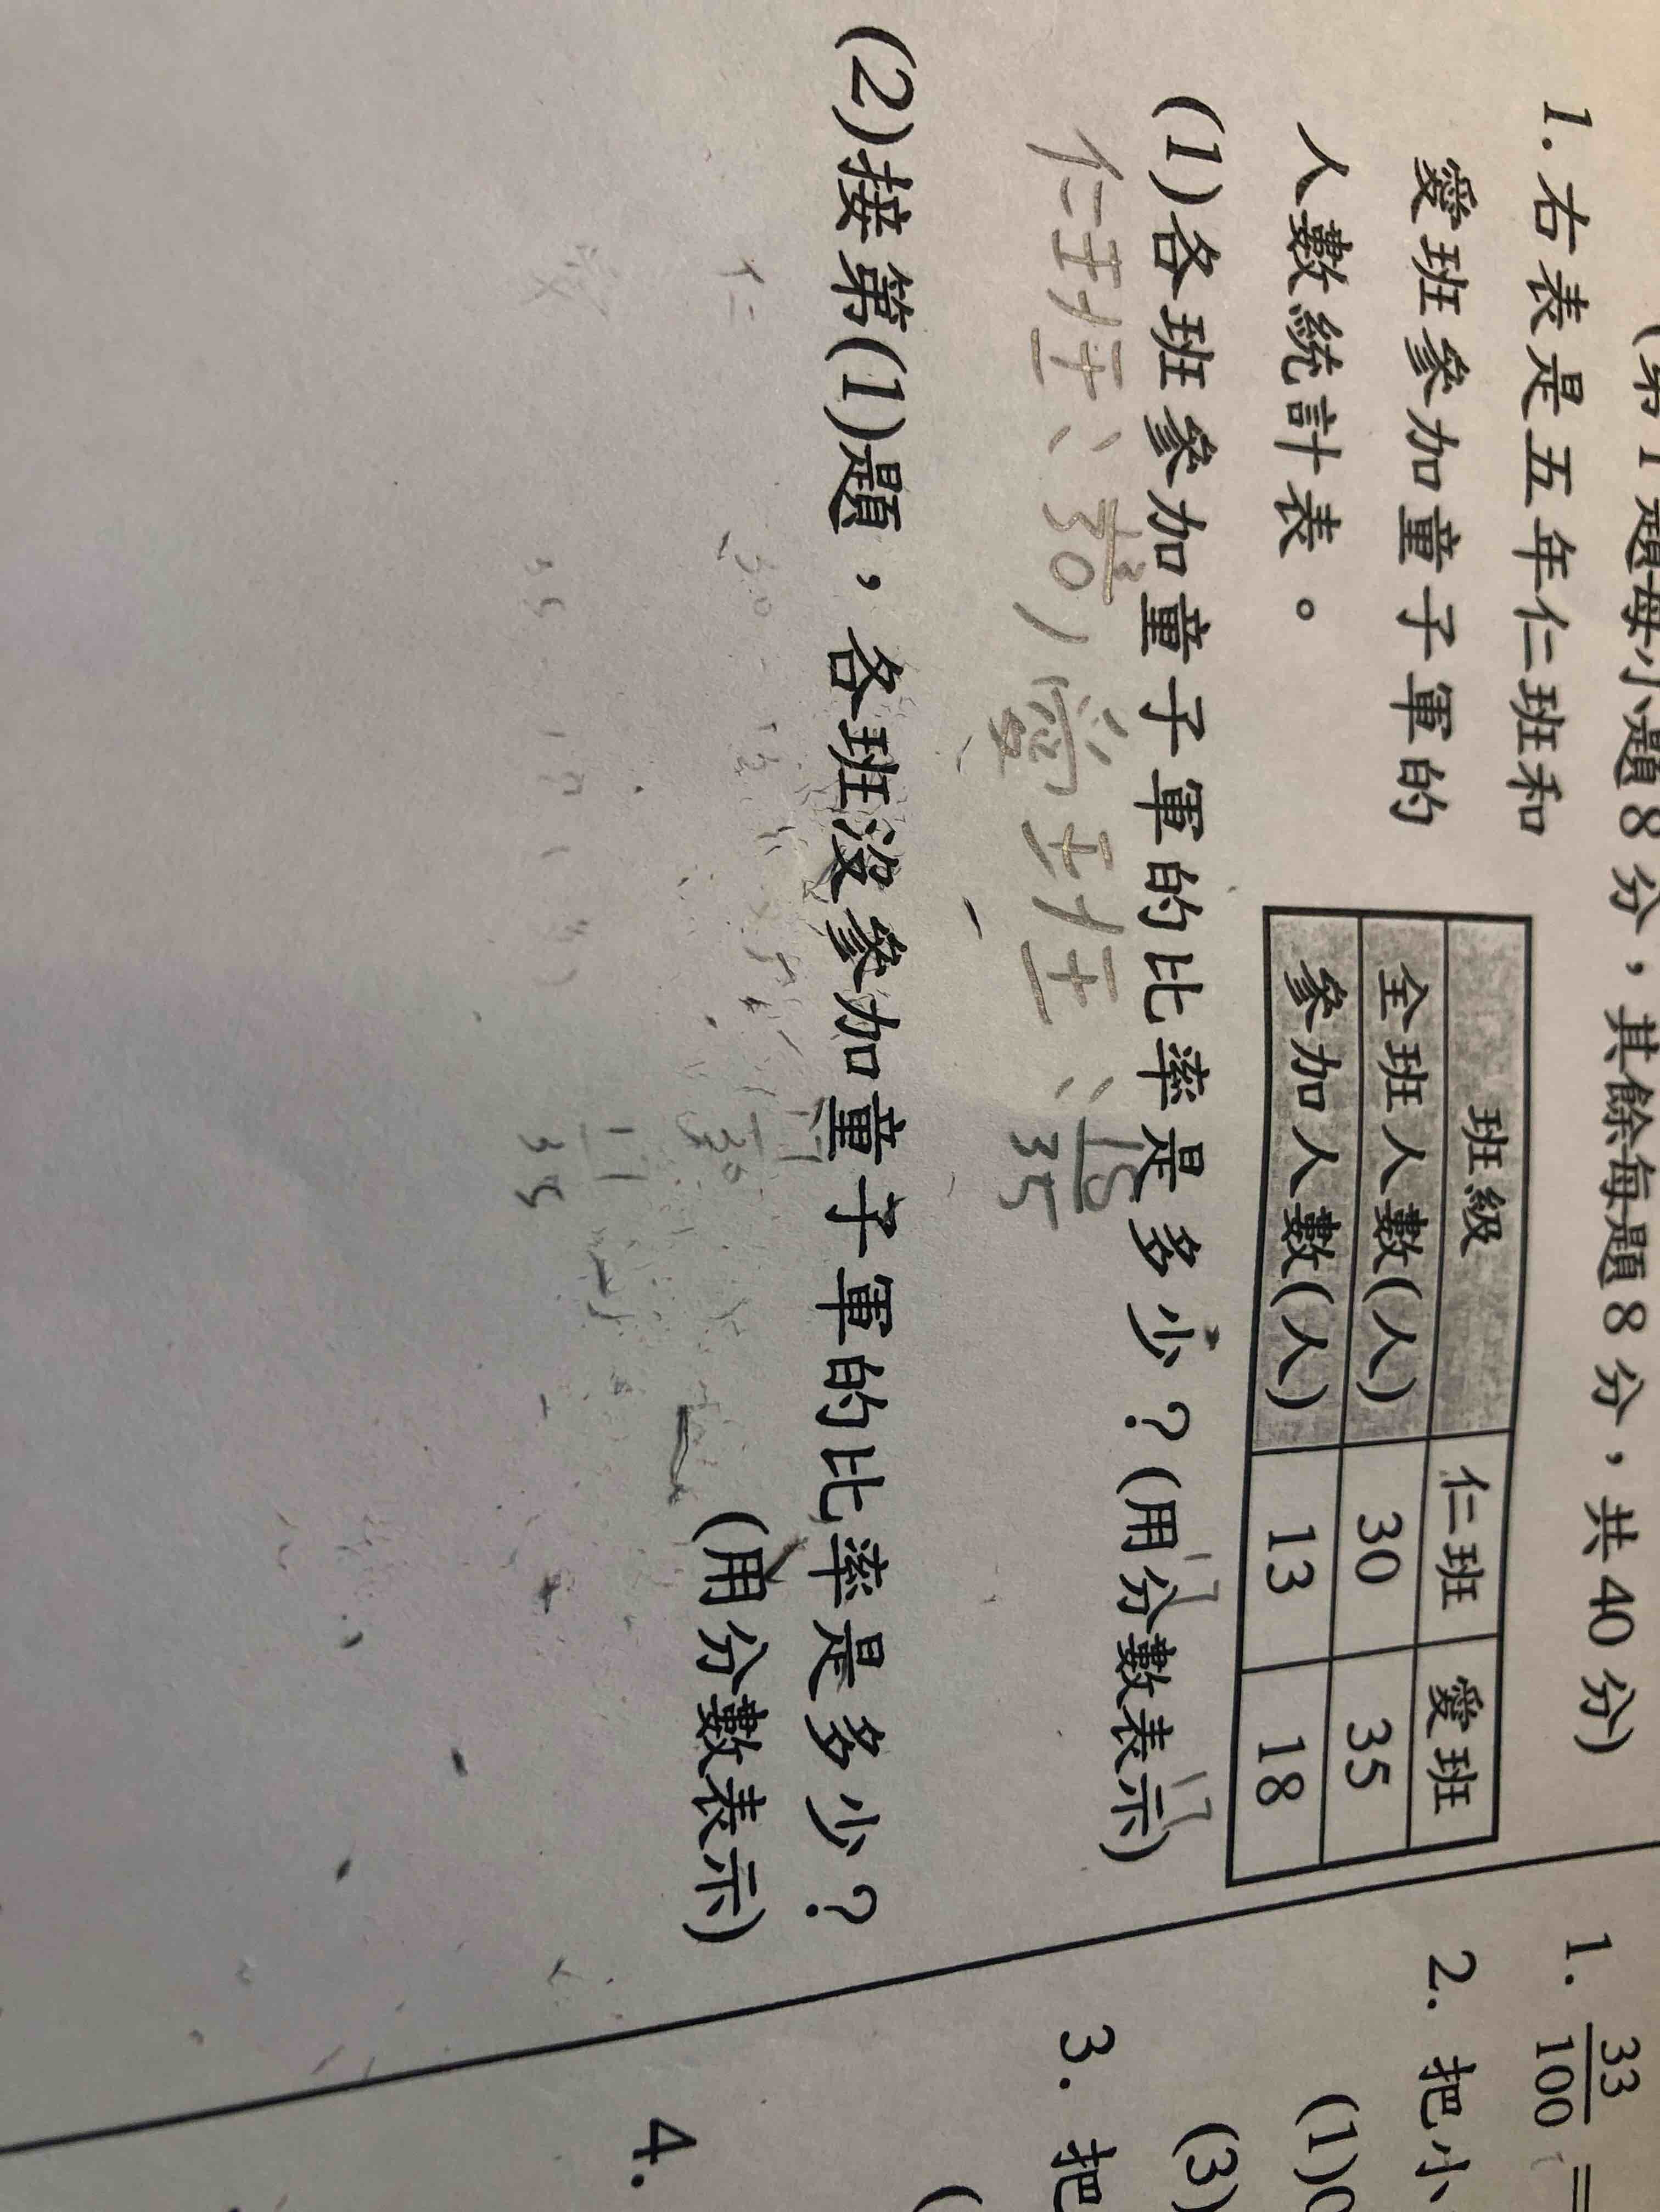 (第1題每小題8分，其餘每題8分，共40分)
1.右表是五年仁班和
愛班參加童子軍的
人數統計表。
班級 仁班 愛班
全班人數(人) 30 35
參加人數(人) 13 18
17 17
(1)各班參加童子軍的比率是多少？(用分數表示)
仁班：13/30，愛班：
35
(2)接第(1)題，各班沒參加童子軍的比率是多少？
(用分數表示)
仁 30 17/30
愛 35 17/35
1. 33/100 =
2. 把小
(1)0
(3)
3. 把
(
4.